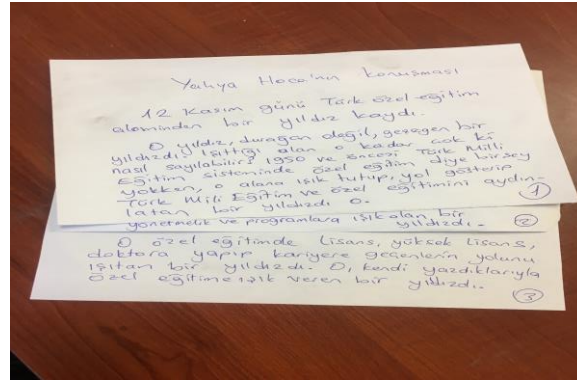 Yahya Hoca'nın konuşması
12 Kasım günü Türk özel eğitim
aleminden bir yıldız kaydı.
O yıldız, durağan değil, gezegen bir
yıldızdı. Işıttığı alan o kadar çok ki
nasıl sayılabilir! 1950 ve öncesi Türk Milli
Eğitim sisteminde özel eğitim diye birşey
yokken, o alana ışık tutup, yol gösterip
Türk Mili Eğitim ve özel eğitimini aydın-
latan bir yıldızdı o.
1
yönetmelik ve programlara ışık olan bir
yıldızdı.
2
O özel eğitimde Lisans, yüksek Lisans,
doktora yapıp kariyere geçenlerin yolunu
ışıtan bir yıldızdı. O, kendi yazdıklarıyla
özel eğitime ışık veren bir yıldızdı.
3